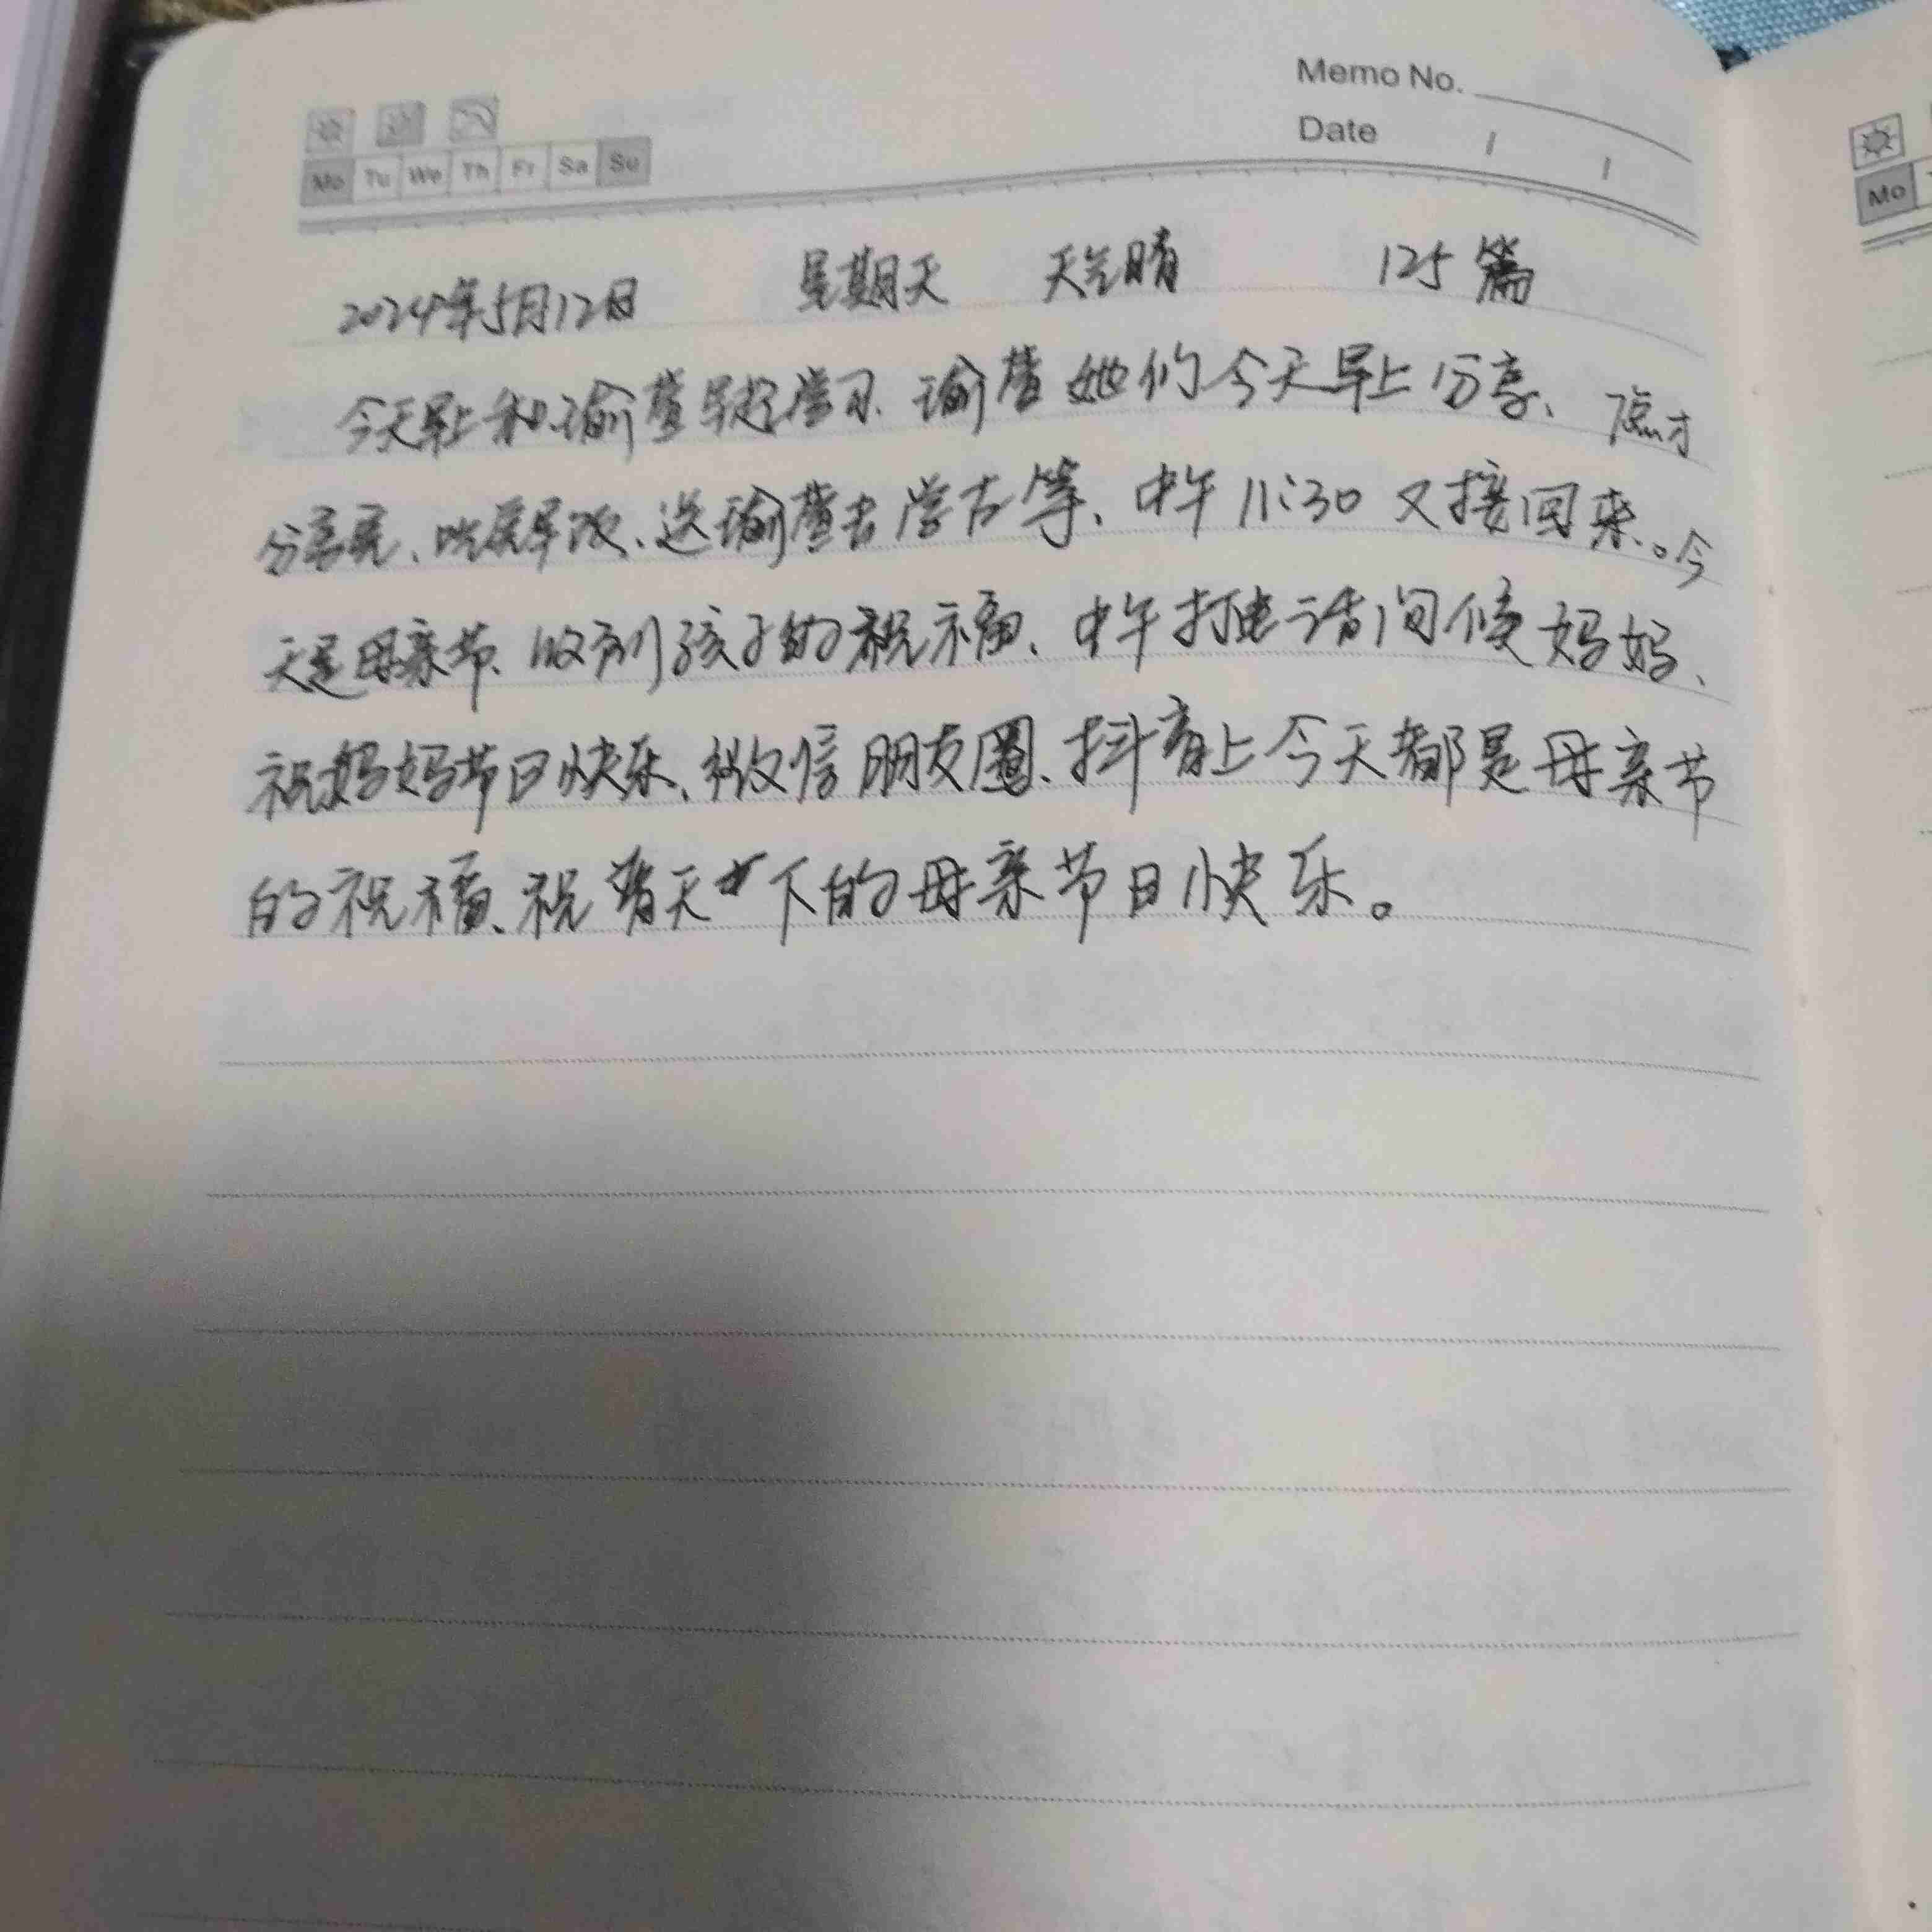 Memo No.
Date / /
Mo Tu We Th Fr Sa Su
Mo
2024年5月12日 星期天 天气晴 125篇
今天早上和瑜萱早起学习、瑜萱她们今天早上分享、
分享完、吃完早饭、送瑜萱去学古筝、中午11:30又接回来。今
天是母亲节、收到孩子的祝福、中午打电话问候妈妈、
祝妈妈节日快乐、微信朋友圈、抖音上今天都是母亲节
的祝福、祝普天下的母亲节日快乐。